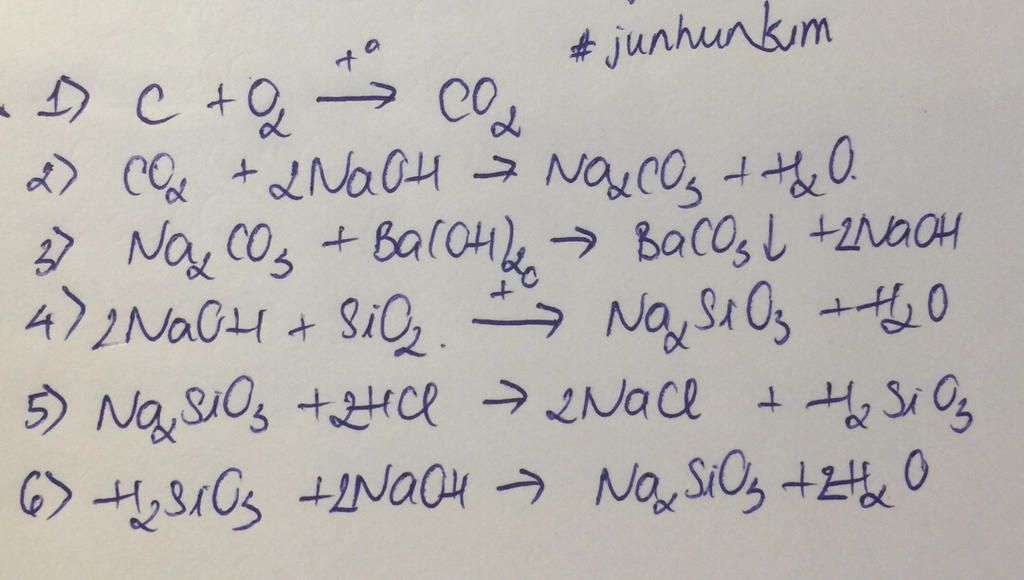 #junhunkim
1) C + O₂ →^(t°) CO₂
2) CO₂ + 2NaOH → Na₂CO₃ + H₂O.
3) Na₂CO₃ + Ba(OH)₂ → BaCO₃↓ + 2NaOH
4) 2NaOH + SiO₂. →^(t°) Na₂SiO₃ + H₂O
5) Na₂SiO₃ + 2HCl → 2NaCl + H₂SiO₃
6) H₂SiO₃ + 2NaOH → Na₂SiO₃ + 2H₂O